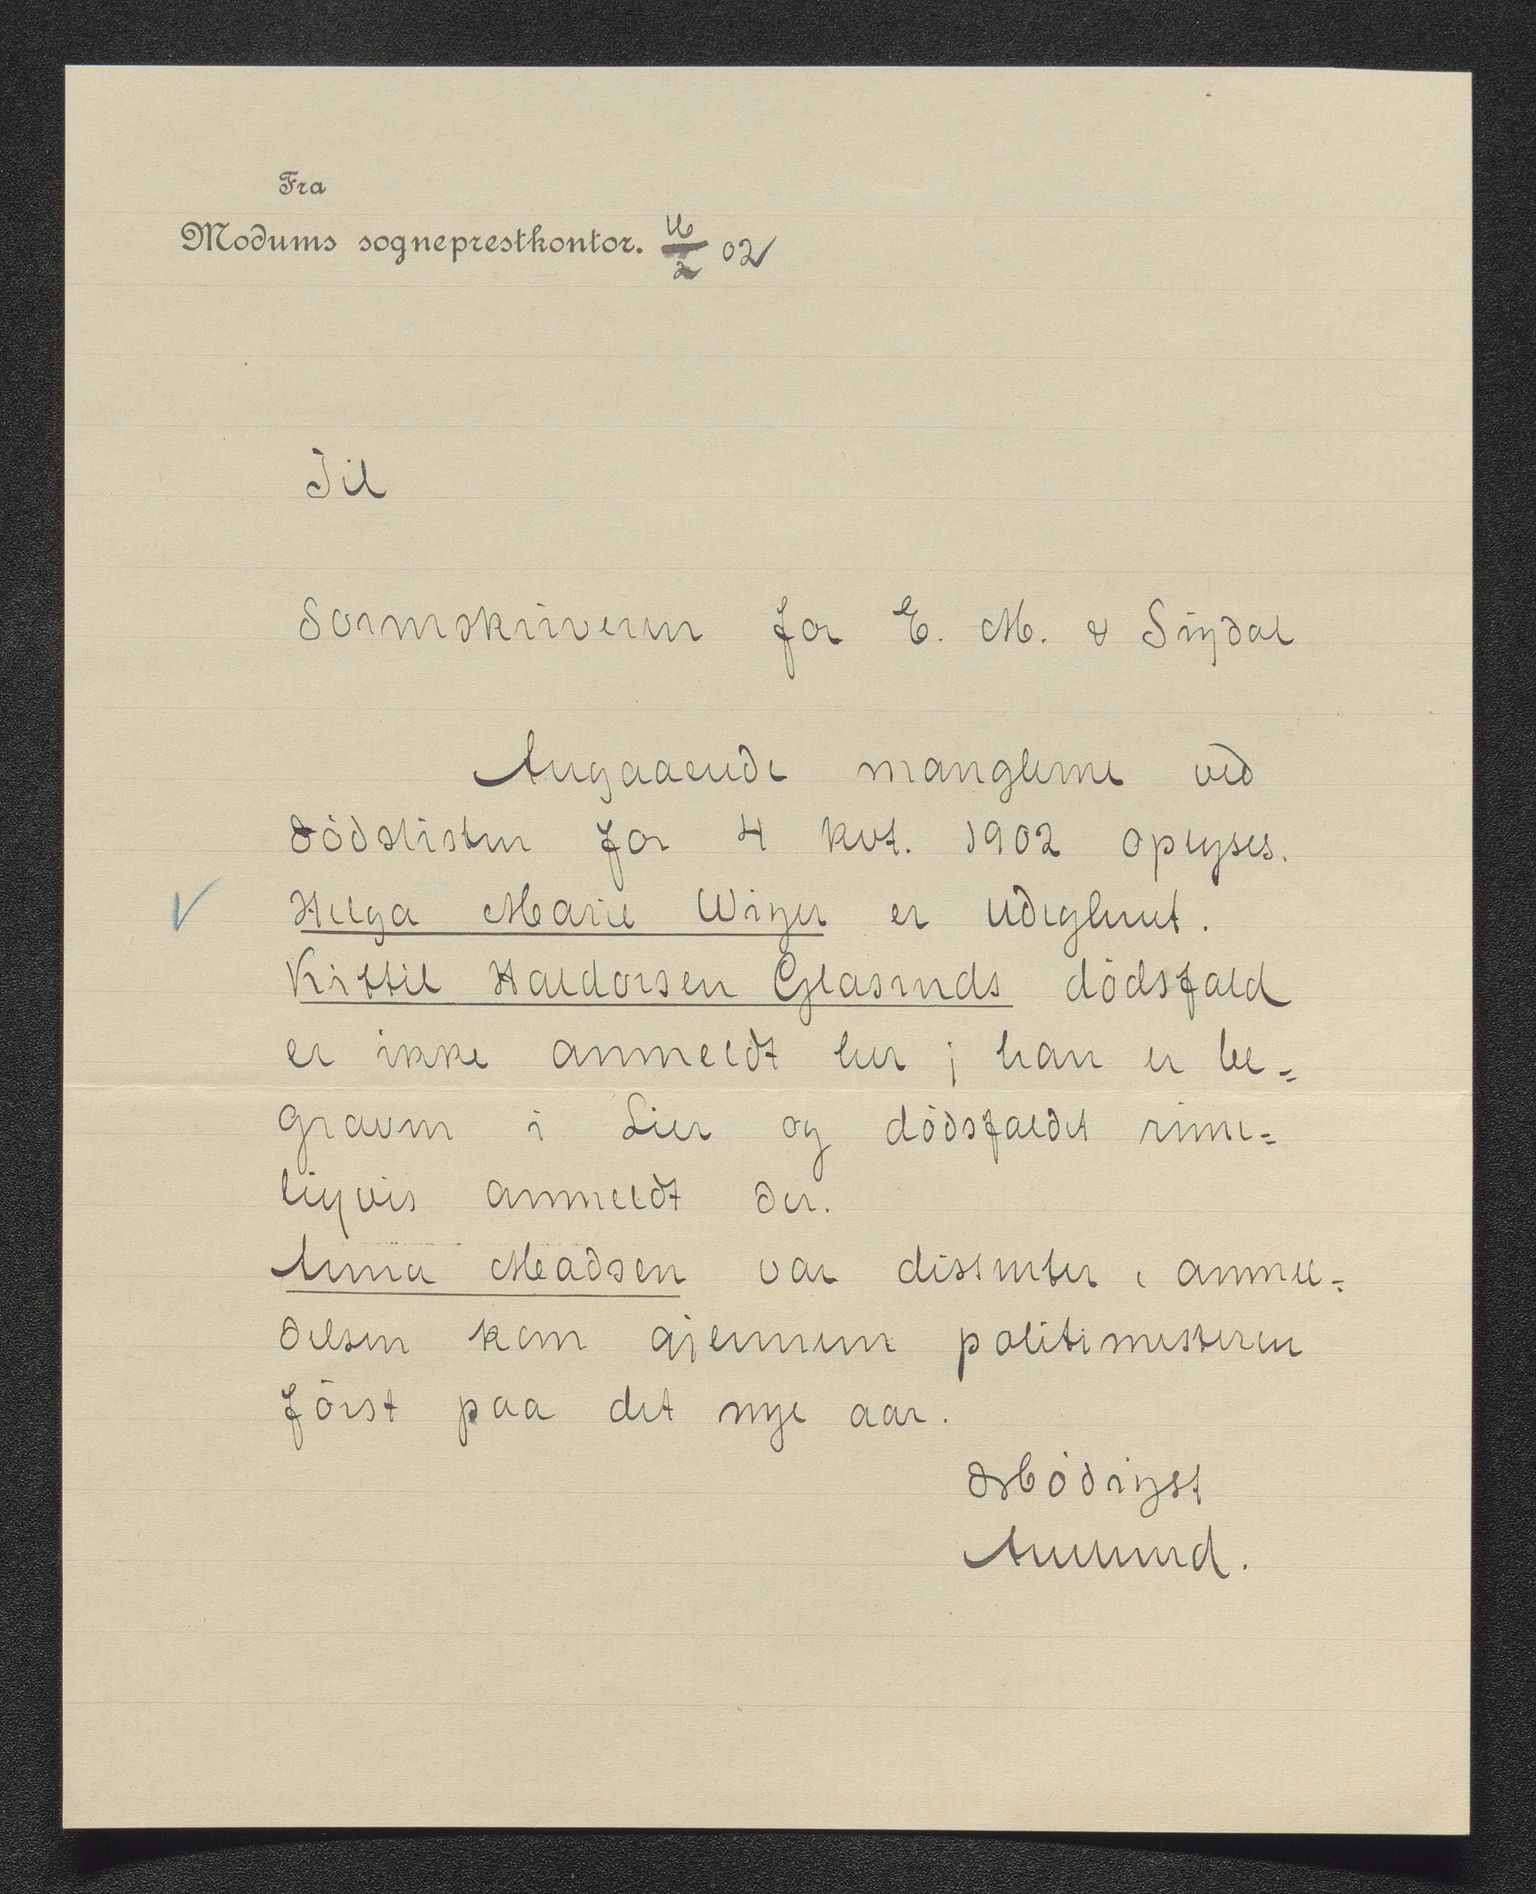 Fra
Modums sogneprestkontor. 16/2 02
Til
Sorenskriveren for E. M. & Sigdal
Angaaende manglerne ved
dødslisten for 4 kvt. 1902 oplyses.
Helga Marie Wiger er udeglemt.
Kittil Haldorsen Glasruds dødsfald
er ikke anmeldt her; han er be=
graven i Lier og dødsfaldet rime=
ligvis anmeldt der.
Anna Madsen var dissenter, anmel=
delsen kom gjennem politimesteren
først paa det nye aar.
Ærbødigst